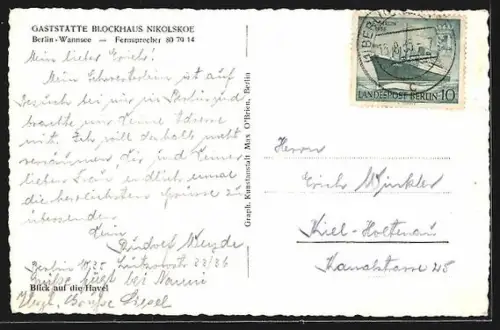 GASTSTÄTTE BLOCKHAUS NIKOLSKOE
Berlin-Wannsee — Fernsprecher 80 79 14
Mein lieber Erich!
Mein Schwesterlein ist auf
Besuch bei mir in Berlin und
brachte mir Deine Adresse
mit. Ich will deshalb nicht
versäumen, dir und Deiner
lieben Frau, endlich einmal
die herzlichsten Grüsse zu
übersenden.
Dein
Rudolf
Berlin W 35
Grüße fügt bei
Herzl. Grüße
Blick auf die Havel
Graph. Kunstanstalt Max O'Brien, Berlin
LANDESPOST BERLIN 10
Herrn
Erich Winkler
Kiel-Holtenau
Kanalstrasse 25